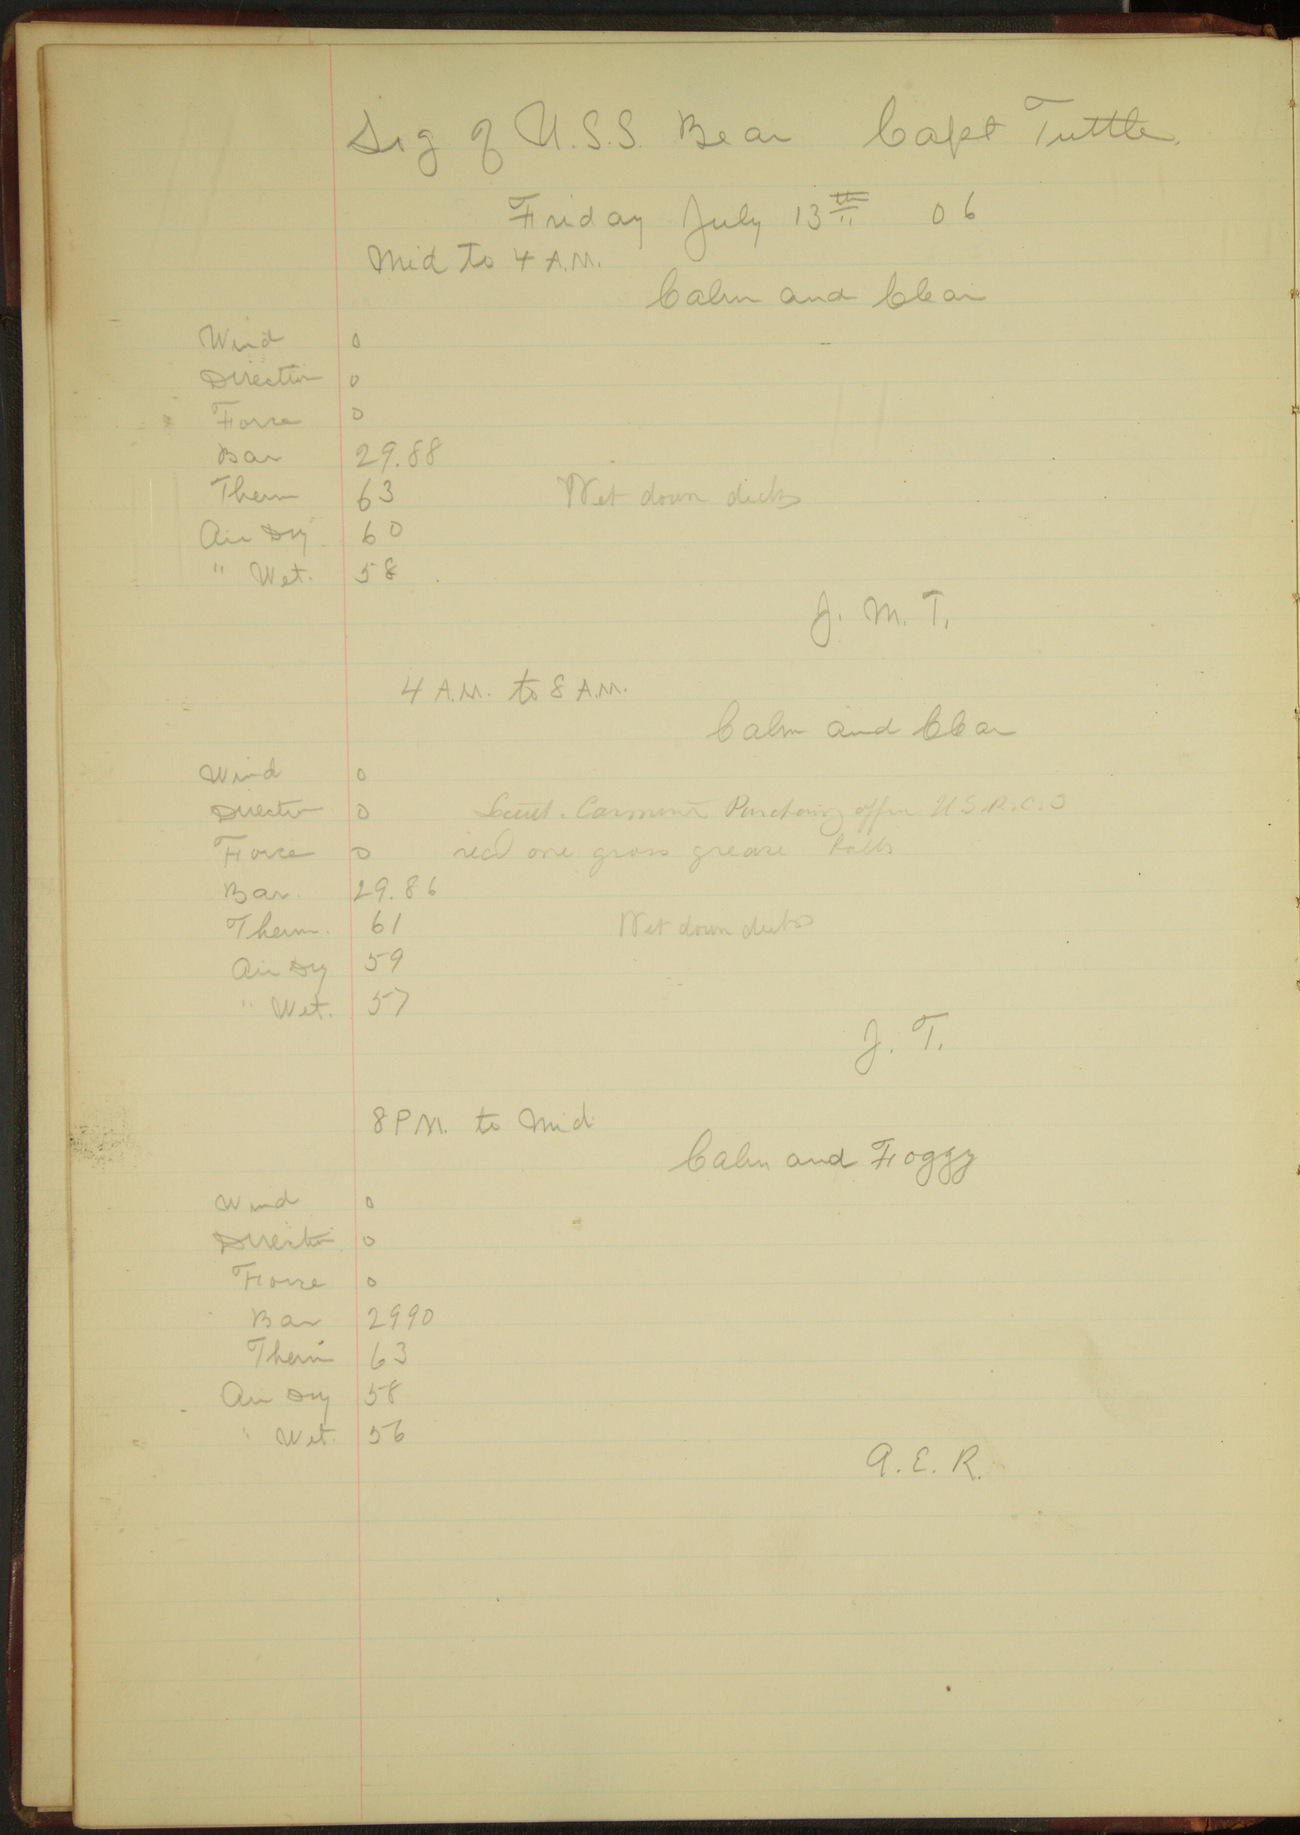 Log of U.S.S. Bear Capt Tuttle.
Friday July 13th 06
Mid to 4 A.M.
Calm and Clear
Wind 0
Direction 0
Force 0
Bar 29.88
Therm 63 Wet down decks
Air Dry 60
" Wet. 58
J. M. T.
4 A.M. to 8 A.M.
Calm and Clear
Wind 0
Direction 0 Lieut. Purchasing officer U.S.R.C.S
Force 0 rec'd one gross grease balls
Bar. 29.86
Therm. 61 Wet down decks
Air Dry 59
" Wet. 57
J. T.
8 P.M. to Mid
Calm and Foggy
Wind 0
Direction 0
Force 0
Bar 2990
Therm 63
Air Dry 58
" Wet. 56
A. E. R.